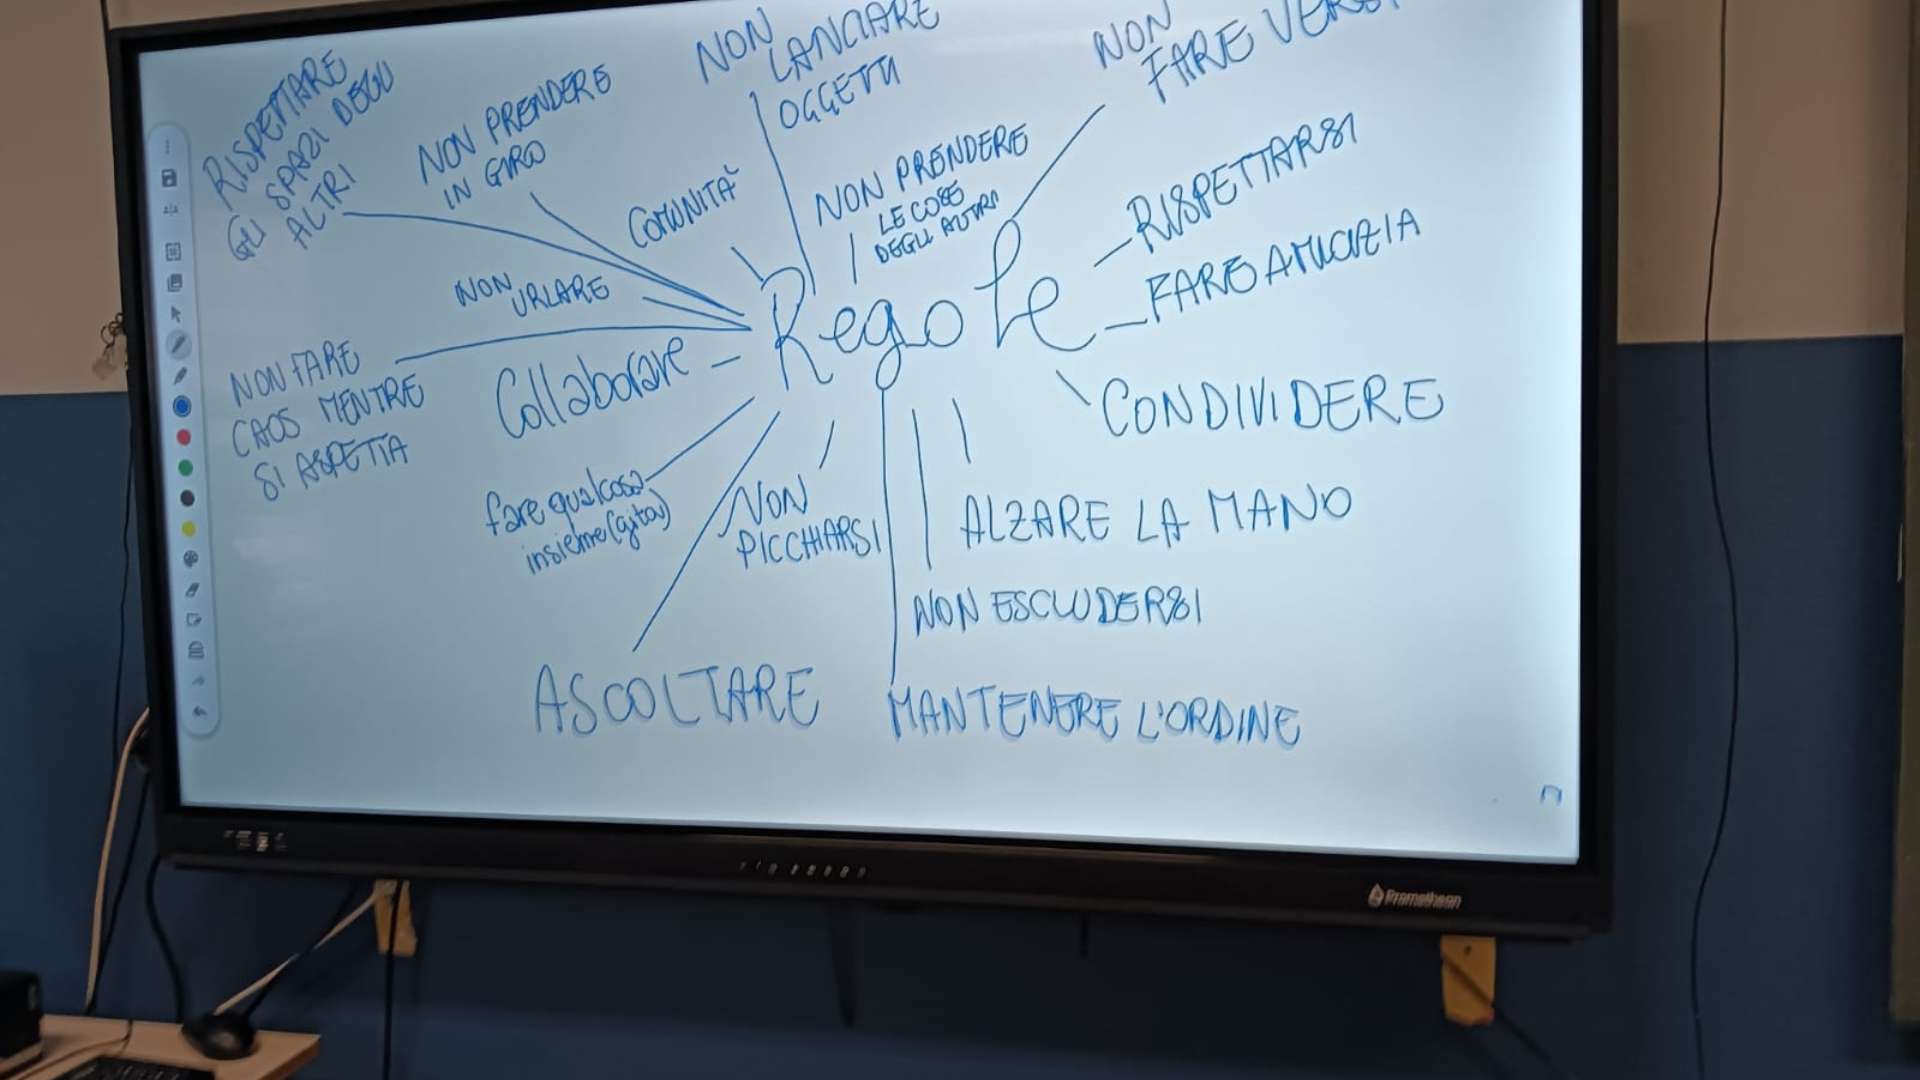 RISPETTARE
GLI SPAZI DEGLI
ALTRI
NON PRENDERE
IN GIRO
NON
LANCIARE
OGGETTI
NON
FARE VERSI
COMUNITÀ
NON PRENDERE
LE COSE
DEGLI ALTRI
RISPETTARSI
FARE AMICIZIA
NON
URLARE
Regole
NON FARE
CAOS MENTRE
SI ASPETTA
Collaborare
CONDIVIDERE
fare qualcosa
insieme (gita)
NON
PICCHIARSI
ALZARE LA MANO
NON ESCLUDERSI
ASCOLTARE
MANTENERE L'ORDINE
Promethean